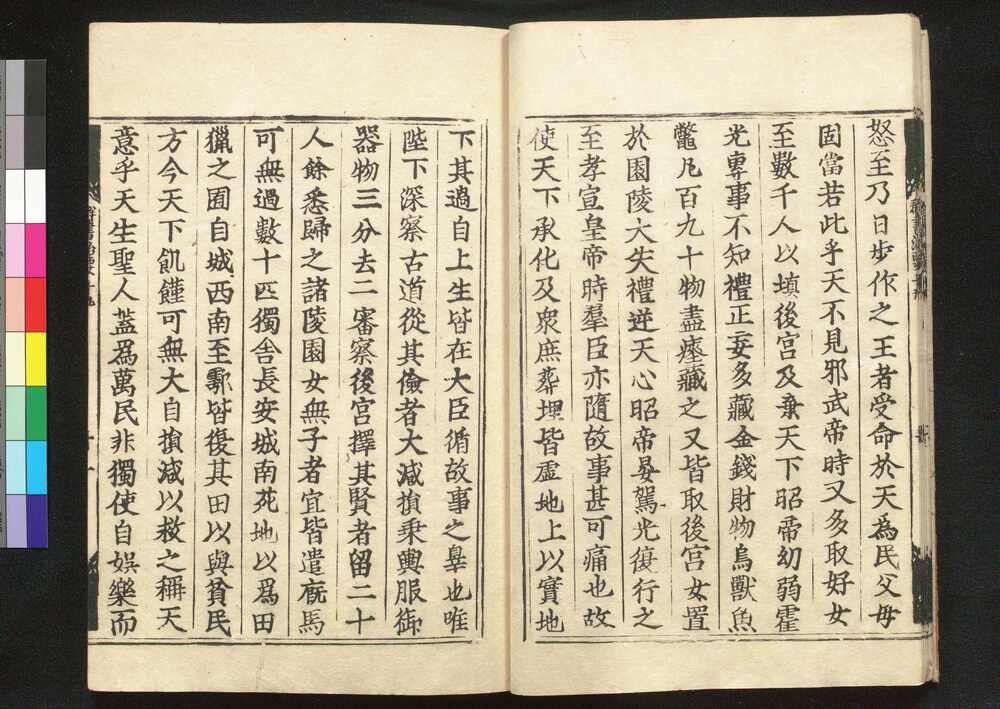 怒至乃日步作之王者受命於天爲民父母
固當若此乎天不見邪武帝時又多取好女
至數千人以塡後宮及棄天下昭帝幼弱霍
光專事不知禮正妄多藏金錢財物鳥獸魚
鼈凡百九十物盡瘞藏之又皆取後宮女置
於園陵大失禮逆天心昭帝晏駕光復行之
至孝宣皇帝時羣臣亦隨故事甚可痛也故
使天下承化及衆庶葬埋皆虛地上以實地
下其過自上生皆在大臣循故事之辠也唯
陛下深察古道從其儉者大減損乘輿服御
器物三分去二審察後宮擇其賢者留二十
人餘悉歸之諸陵園女無子者宜皆遣廐馬
可無過數十匹獨舍長安城南苑地以爲田
獵之囿自城西南至鄠皆復其田以與貧民
方今天下飢饉可無大自損減以救之稱天
意乎天生聖人蓋爲萬民非獨使自娛樂而